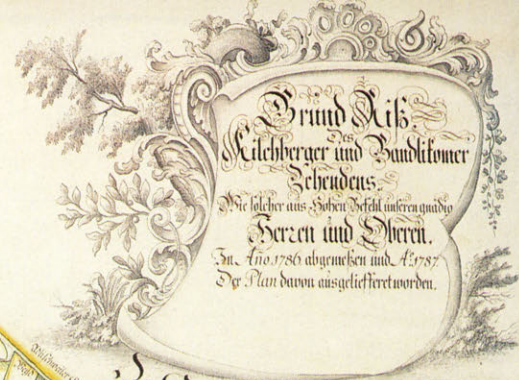 Grund Riß.
Des
Kilchberger und Bandlikomer
Zehendens,
Wie solcher aus Hohen Befehl unseren gnädig
Herren und Oberen.
In Año 1786 abgemeßen und Aº 1787.
Der Plan davon ausgeliefferet worden.